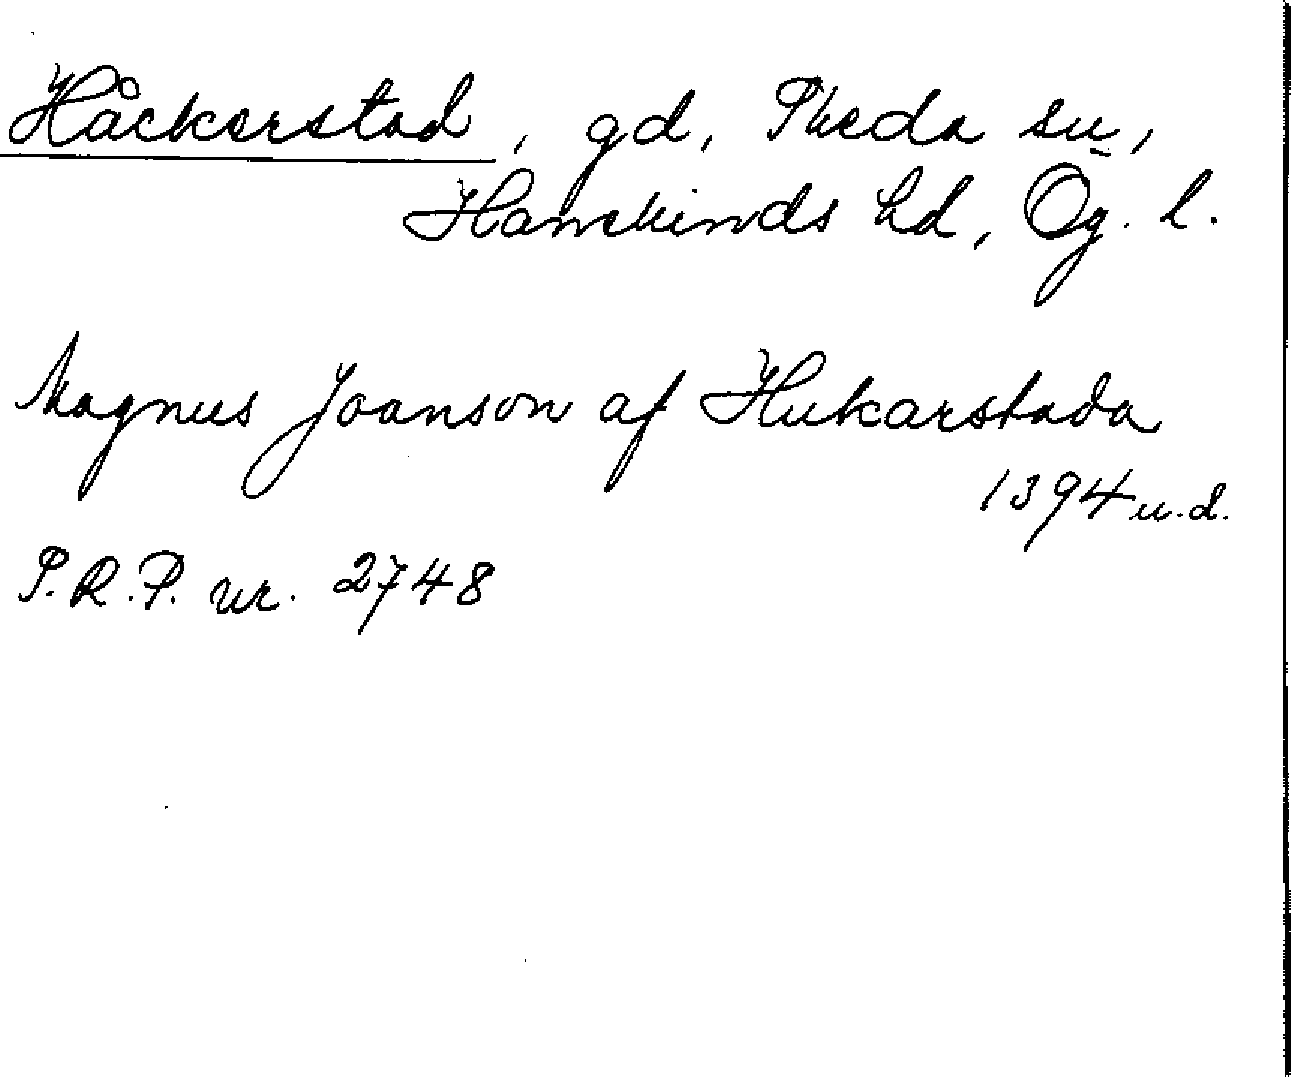 Håckerstad, gd, Skeda sn,
Hanekinds hd, Ög. l.
Magnus Joanson af Hukarstada
1394 u.d.
S.R.P. nr. 2748